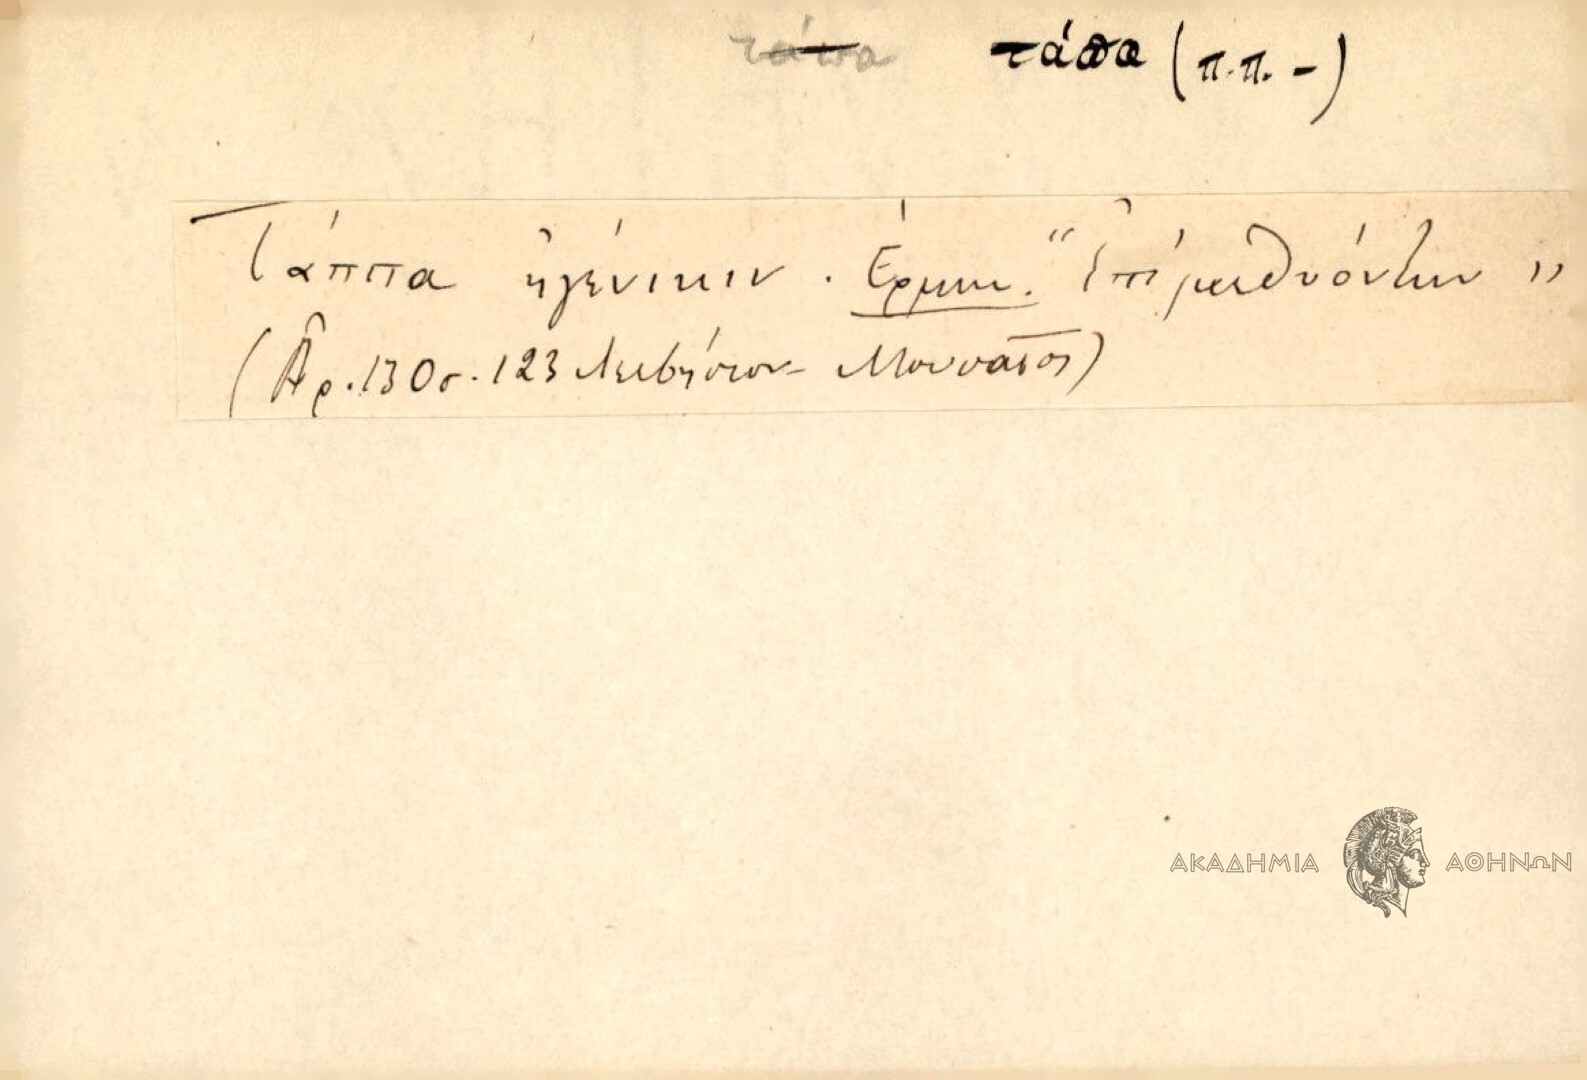 τάπα τάπα (π.π. -)
Τάππα ἐγένικιν. Ἑρμην. "Ἐπὶ μεθυόντων"
(Ἀρ. 130 σ. 123 Λειβήσιον - Μουσαῖος)
ΑΚΑΔΗΜΙΑ ΑΘΗΝΩΝ